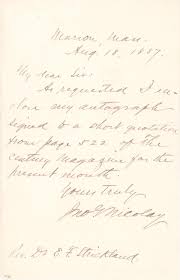 Marion, Mass.
Aug 18, 1887.
My dear Sir:
As requested I en-
close my autograph
signed to a short quotation
from page 522 of the
Century Magazine for the
present month
Yours truly
Jno G Nicolay
Rev. Dr E. F. Strickland